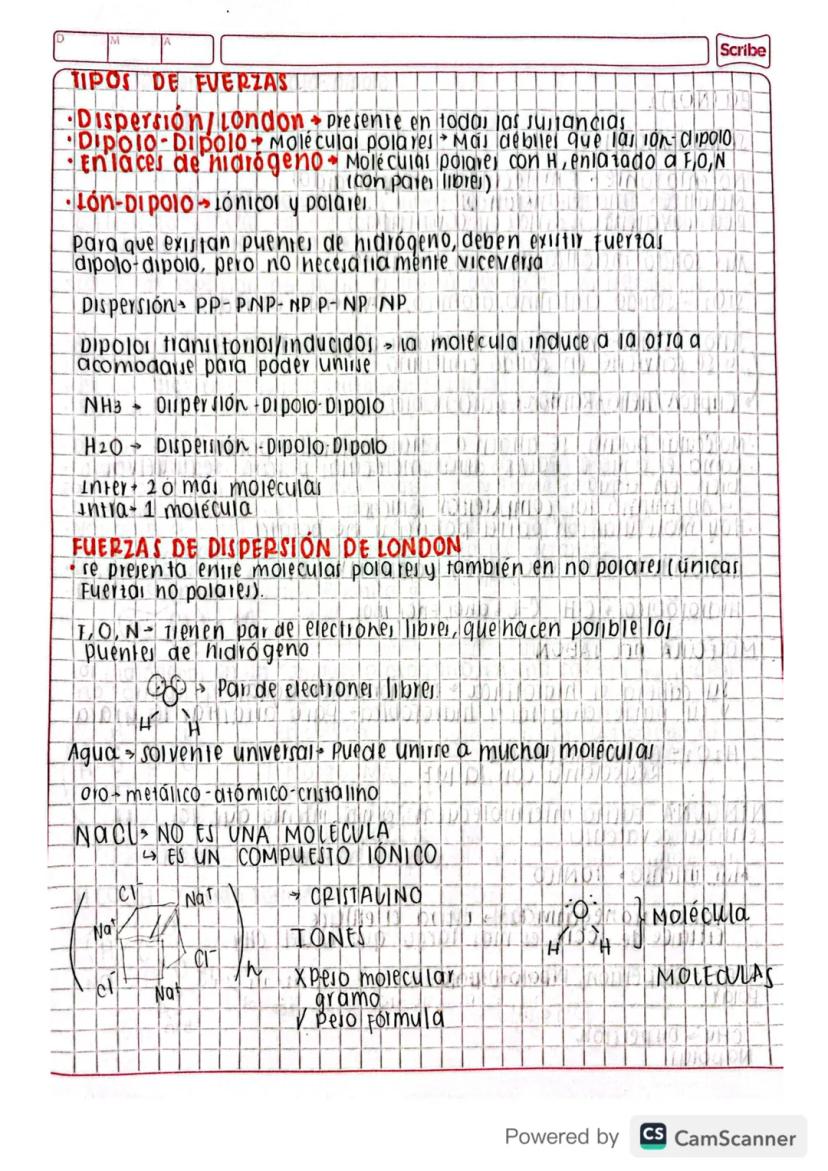 D M A
Scribe
TIPOS DE FUERZAS
• Dispersión/London → Presente en todas las sustancias
• Dipolo-Dipolo → Moléculas polares → Más débiles que las ión-dipolo
• Enlaces de hidrógeno → Moléculas polares con H, enlazado a F,O,N
(con pares libres)
• Ión-Dipolo → Iónicos y polares
Para que existan puentes de hidrógeno, deben existir fuerzas
dipolo-dipolo, pero no necesariamente viceversa
Dispersión → PP- P.NP- NP P- NP NP
Dipolos transitorios/inducidos → la molécula induce a la otra a
acomodarse para poder unirse
NH3 → Dispersión - Dipolo-Dipolo
H2O → Dispersión - Dipolo-Dipolo
Inter → 2 o más moléculas
Intra → 1 molécula
FUERZAS DE DISPERSIÓN DE LONDON
• se presenta entre moléculas polares y también en no polares (únicas
Fuerzas no polares).
F, O, N → Tienen par de electrones libres, que hacen posible los
puentes de hidrógeno
→ Par de electrones libres
H H
Agua → solvente universal → Puede unirse a muchas moléculas
Oro → metálico - atómico - cristalino
NaCl → NO ES UNA MOLÉCULA
↳ ES UN COMPUESTO IÓNICO
Cl⁻ Na⁺ → CRISTALINO
Na⁺ IONES O } Molécula
Cl⁻ n H H
Cl⁻ Na⁺ X Peso molecular MOLECULAS
gramo
✓ Peso fórmula
Powered by CS CamScanner